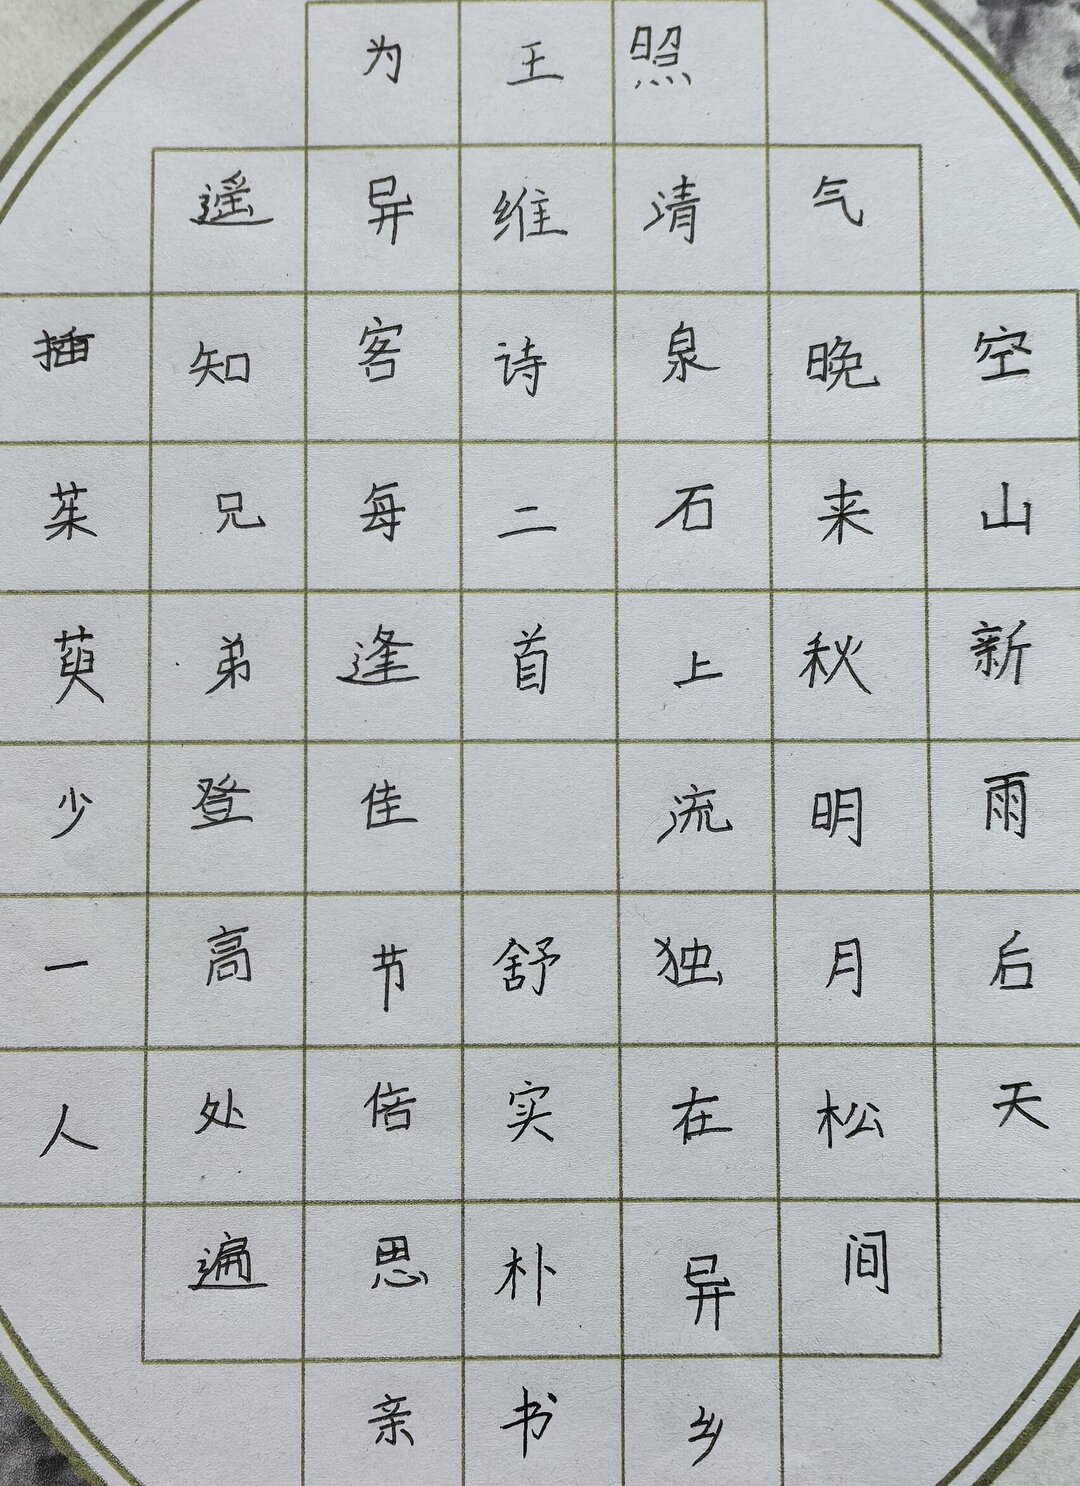 空山新雨后天
气晚来秋明月松间
照清泉石上流独在异乡
王维诗二首 舒实朴书
为异客每逢佳节倍思亲
遥知兄弟登高处遍
插茱萸少一人